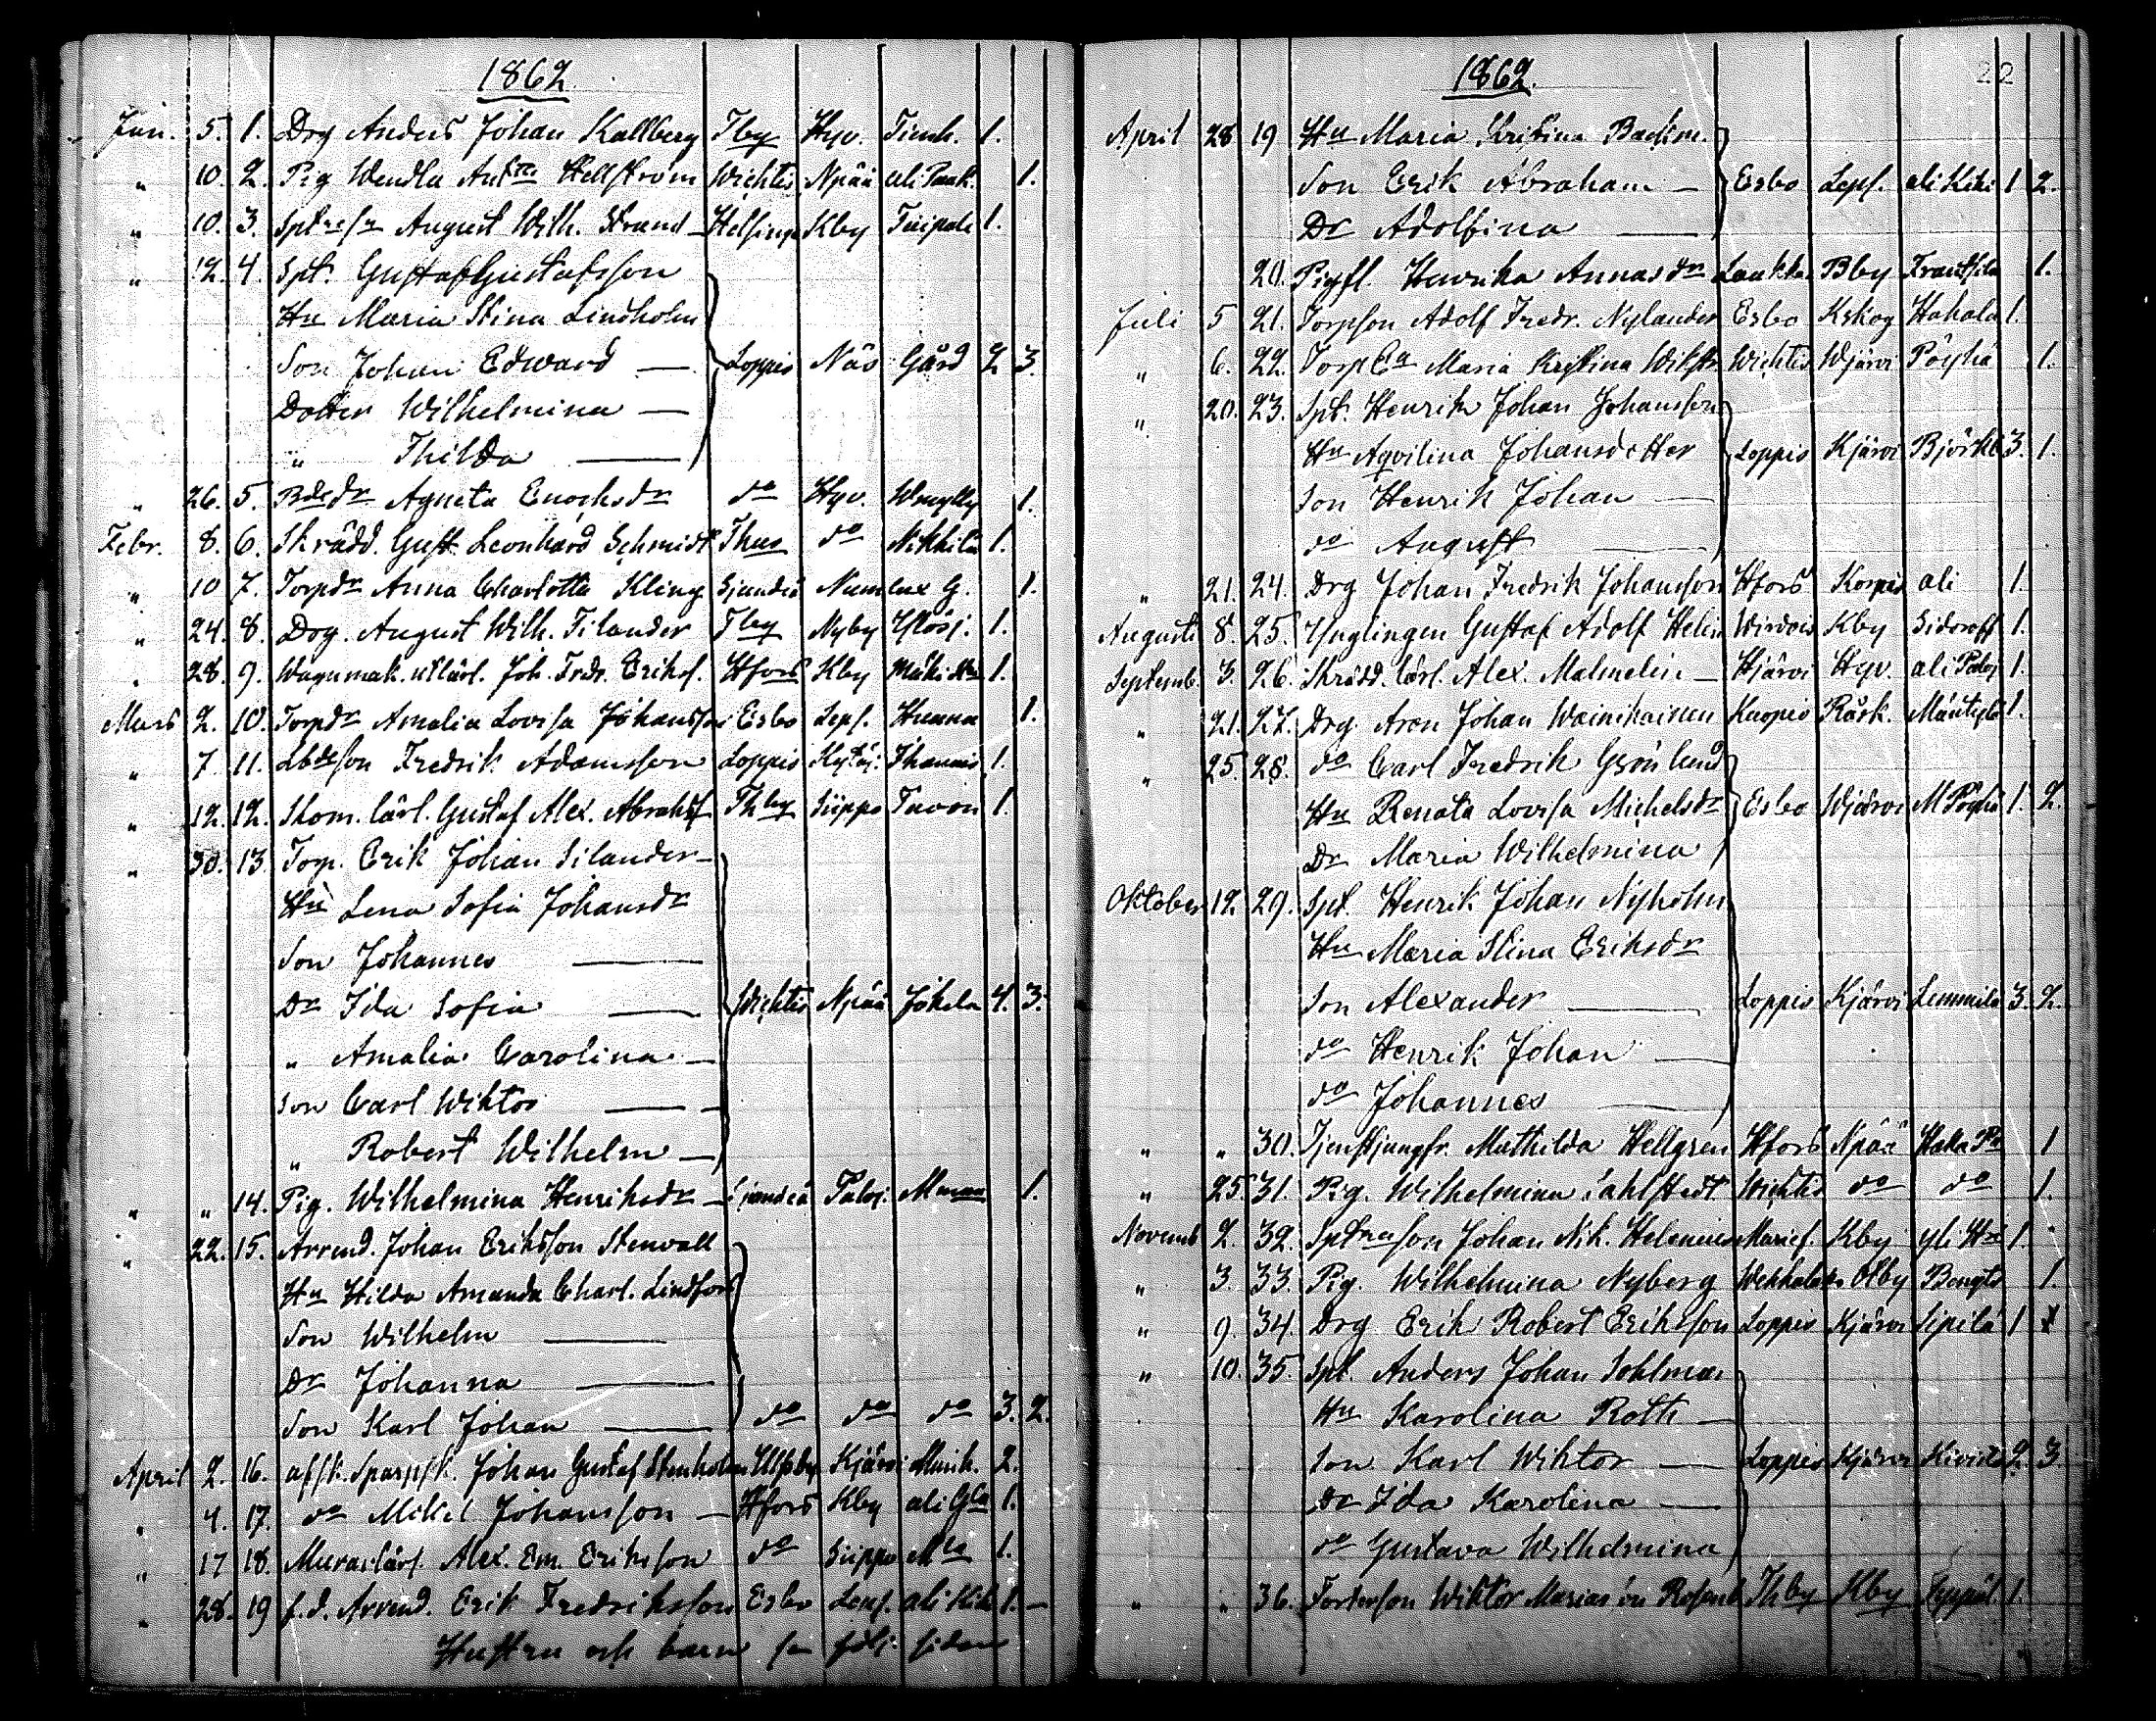 1862.
Jan. 5. 1. Drg Anders Johan Kallberg Tby Hyv. Timh. 1.
" 10. 2. Pig Wendla Hellström Wichtis Npää ali Paak. 1.
" 10. 3. August Wilh. Strand Helsinge Kby Tuipale 1.
" 12. 4. Spt. Gustaf Gustafsson
Hu Maria Stina Lindholm
Son Johan Edward — Loppis Näs Gård 2 3.
Dotter Wilhelmina —
" Thilda —
" 26. 5. Agneta Enochsdr do Hyv. 1.
Febr. 8. 6. Skrädd. Gust. Leonhard Schmidt Thus do Nikkilä 1.
" 10 7. Torpdr Anna Charlotta Kling Sjundeå Numlax G. 1.
" 24. 8. Drg. August Wilh. Tilander Tby Nyby 1.
" 28. 9. Wagnmak. Joh. Frdr. Eriks. Hfors Kby 1.
Mars 2. 10. Torpdr Amalia Lovisa Johansson Esbo Leps. 1.
" 7. 11. Lbdeson Fredrik Adamsson Loppis Kytäj: 1.
" 12. 12. Skom. lärl. Gustaf Alex. Abrahsf Thby Siippo Tavon 1.
" 30. 13 Torp. Erik Johan Silander —
Hu Lena Sofia Johansdr
Son Johannes —
Dr Ida Sofia — Wichtis Npää Jokela 4. 3.
" Amalia Carolina —
Son Carl Wiktor —
" Robert Wilhelm —
" " 14. Pig. Wilhelmina Henriksdr — Sjundeå Paloj. 1.
" 22. 15. Arrend. Johan Eriksson Stenvall
Hu Hilda Amanda Charl. Lindfors
Son Wilhelm —
Dr Johanna —
Son Karl Johan — do do do 3. 2.
April 2. 16. afsk. Johan Gustaf Stenholm Kjärvi 2.
" 4. 17. do Mikel Johansson — Hfors Kby ali 1.
" 17 18. Murarlärl. Alex. Em. Eriksson do Siippo 1.
" 28. 19 f.d. Arrend. Erik Fredriksson Esbo Leps. ali 1. —
Hustru och barn följ. sidan
1862.
22
April 28 19 Hu Maria Kristina
Son Erik Abraham — Esbo Leps. ali 1 2.
Dr Adolfina —
20. Pigfl. Henrika Annasdr Bby Frantsila 1.
Juli 5 21. Torpson Adolf Fredr. Nylander Esbo Kskog Hakala 1.
" 6. 22. Maria Kristina Wikstr Wichtis Wjärvi Pöyhä 1.
" 20. 23. Spt. Henrik Johan Johansson
Hu Aqvilina Johansdotter Loppis Kjärvi 3. 1.
Son Henrik Johan —
do August —
" 21. 24. Drg Johan Fredrik Johansson Hfors Korpis ali 1.
Augusti 8. 25. Ynglingen Gustaf Adolf Helin Kby Sidoroff 1.
Septemb. 3. 26. Skrädd. lärl. Alex. Malmelin — Hjärvi Hyv. ali Paloj 1.
" 21. 27. Drg. Aron Johan Wainikainen Kuopio Råsk. 1.
" 25. 28. do Carl Fredrik Grönlund
Hu Renata Lovisa Michelsdr Esbo Wjärvi 1. 2.
Dr Maria Wilhelmina
Oktober 12. 29. Spt. Henrik Johan Nyholm
Hu Maria Stina Eriksdr
Son Alexander — Loppis Kjärvi Lemmilä 3. 2.
do Henrik Johan —
do Johannes —
" " 30. Tjenstjungfr. Mathilda Hellgren Hfors Npää 1
" 25 31. Pig. Wilhelmina Sahlstedt Wichtis do do 1.
Novemb 2. 32. Johan Nik. Helenius Marief. Kby 1.
" 3. 33. Pig. Wilhelmina Nyberg Olby Bengts 1.
" 9. 34. Drg Erik Robert Eriksson Loppis Kjärvi Sipilä 1
" 10. 35. Spt. Anders Johan Sohlman
Hu Karolina Roth —
Son Karl Wiktor — Loppis Kjärvi 2. 3.
Dr Ida Karolina —
do Gustava Wilhelmina
" " 36. Fosterson Wiktor Thby Kby 1.